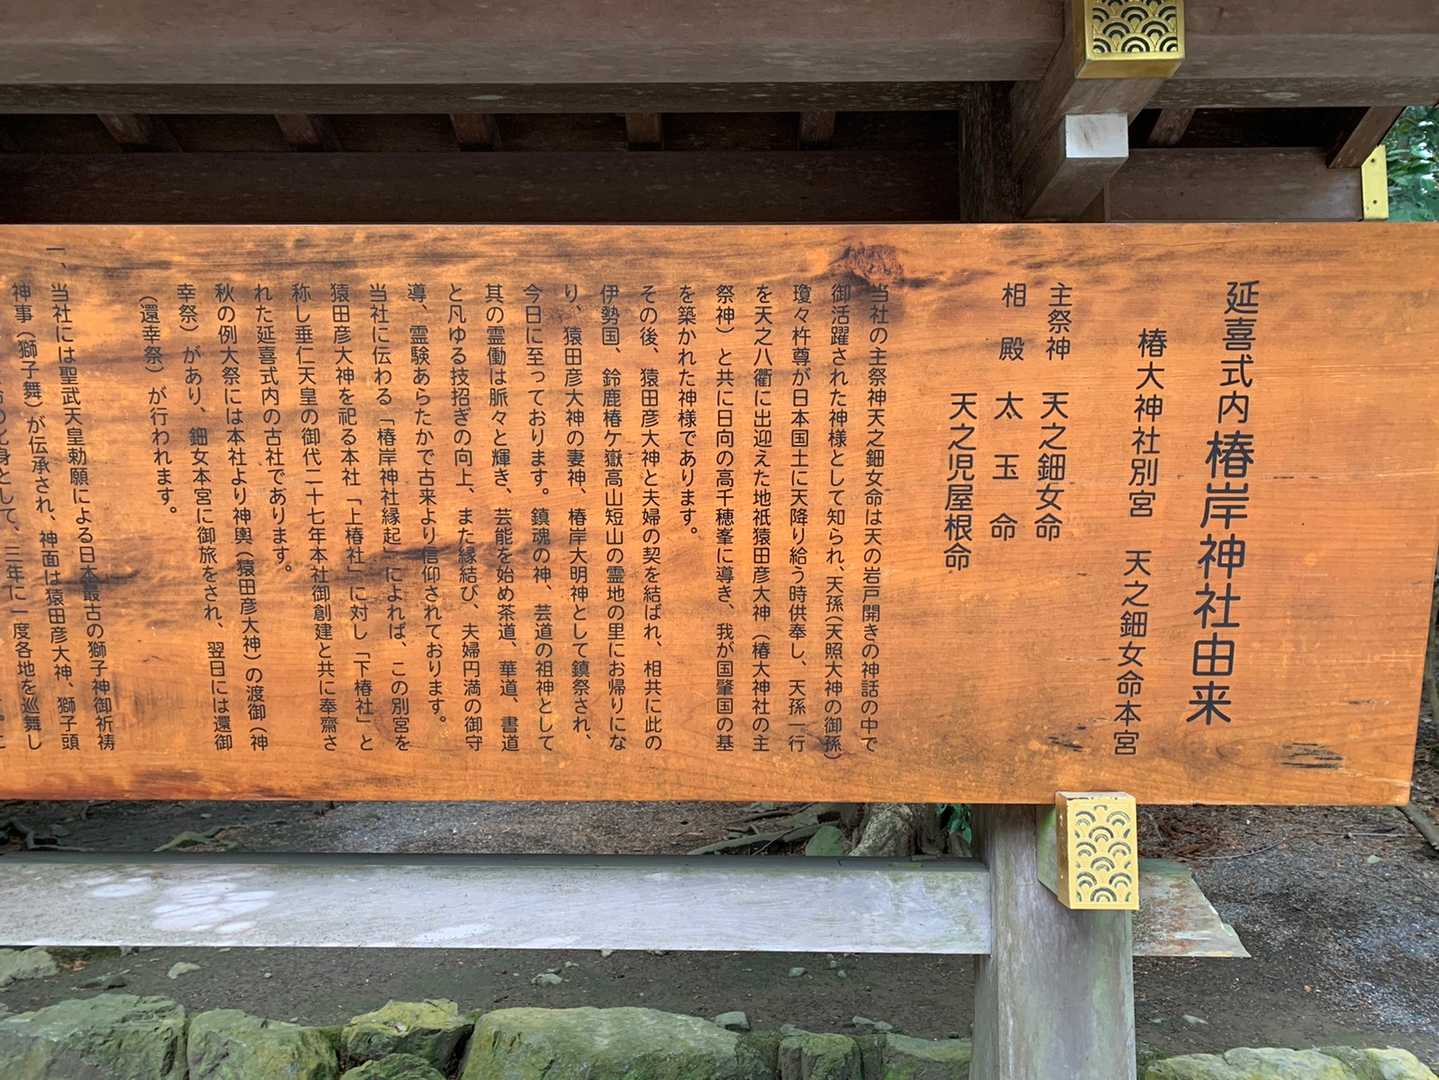 延喜式内 椿岸神社由来
椿大神社別宮 天之鈿女命本宮
主祭神 天之鈿女命
相殿 太玉命
天之児屋根命
当社の主祭神天之鈿女命は天の岩戸開きの神話の中で
御活躍された神様として知られ、天孫(天照大神の御孫)
瓊々杵尊が日本国土に天降り給う時供奉し、天孫一行
を天之八衢に出迎えた地祇猿田彦大神(椿大神社の主
祭神)と共に日向の高千穂峯に導き、我が国肇国の基
を築かれた神様であります。
その後、猿田彦大神と夫婦の契を結ばれ、相共に此の
伊勢国、鈴鹿椿ケ嶽高山短山の霊地の里にお帰りにな
り、猿田彦大神の妻神、椿岸大明神として鎮祭され、
今日に至っております。鎮魂の神、芸道の祖神として
其の霊働は脈々と輝き、芸能を始め茶道、華道、書道
と凡ゆる技招ぎの向上、また縁結び、夫婦円満の御守
導、霊験あらたかで古来より信仰されております。
当社に伝わる「椿岸神社縁起」によれば、この別宮を
猿田彦大神を祀る本社「上椿社」に対し「下椿社」と
称し垂仁天皇の御代二十七年本社御創建と共に奉齋さ
れた延喜式内の古社であります。
秋の例大祭には本社より神輿(猿田彦大神)の渡御(神
幸祭)があり、鈿女本宮に御旅をされ、翌日には還御
(還幸祭)が行われます。
一、当社には聖武天皇勅願による日本最古の獅子神御祈祷
神事(獅子舞)が伝承され、神面は猿田彦大神、獅子頭
として、三年に一度各地を巡舞し